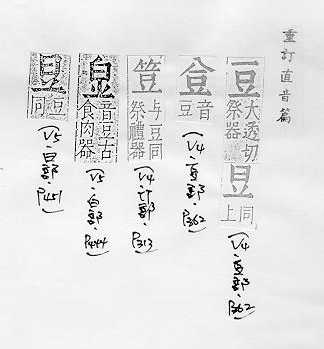 重訂直音篇
豆 大透切 祭器
𣅋 同上
(V4.豆部.P362)
豋 音豆
(V4.豆部.P362)
荳 与豆同 祭禮器
(V4.竹部.P313)
音豆古食肉器
(V5.白部.P444)
同豆
(V5.白部.P451)